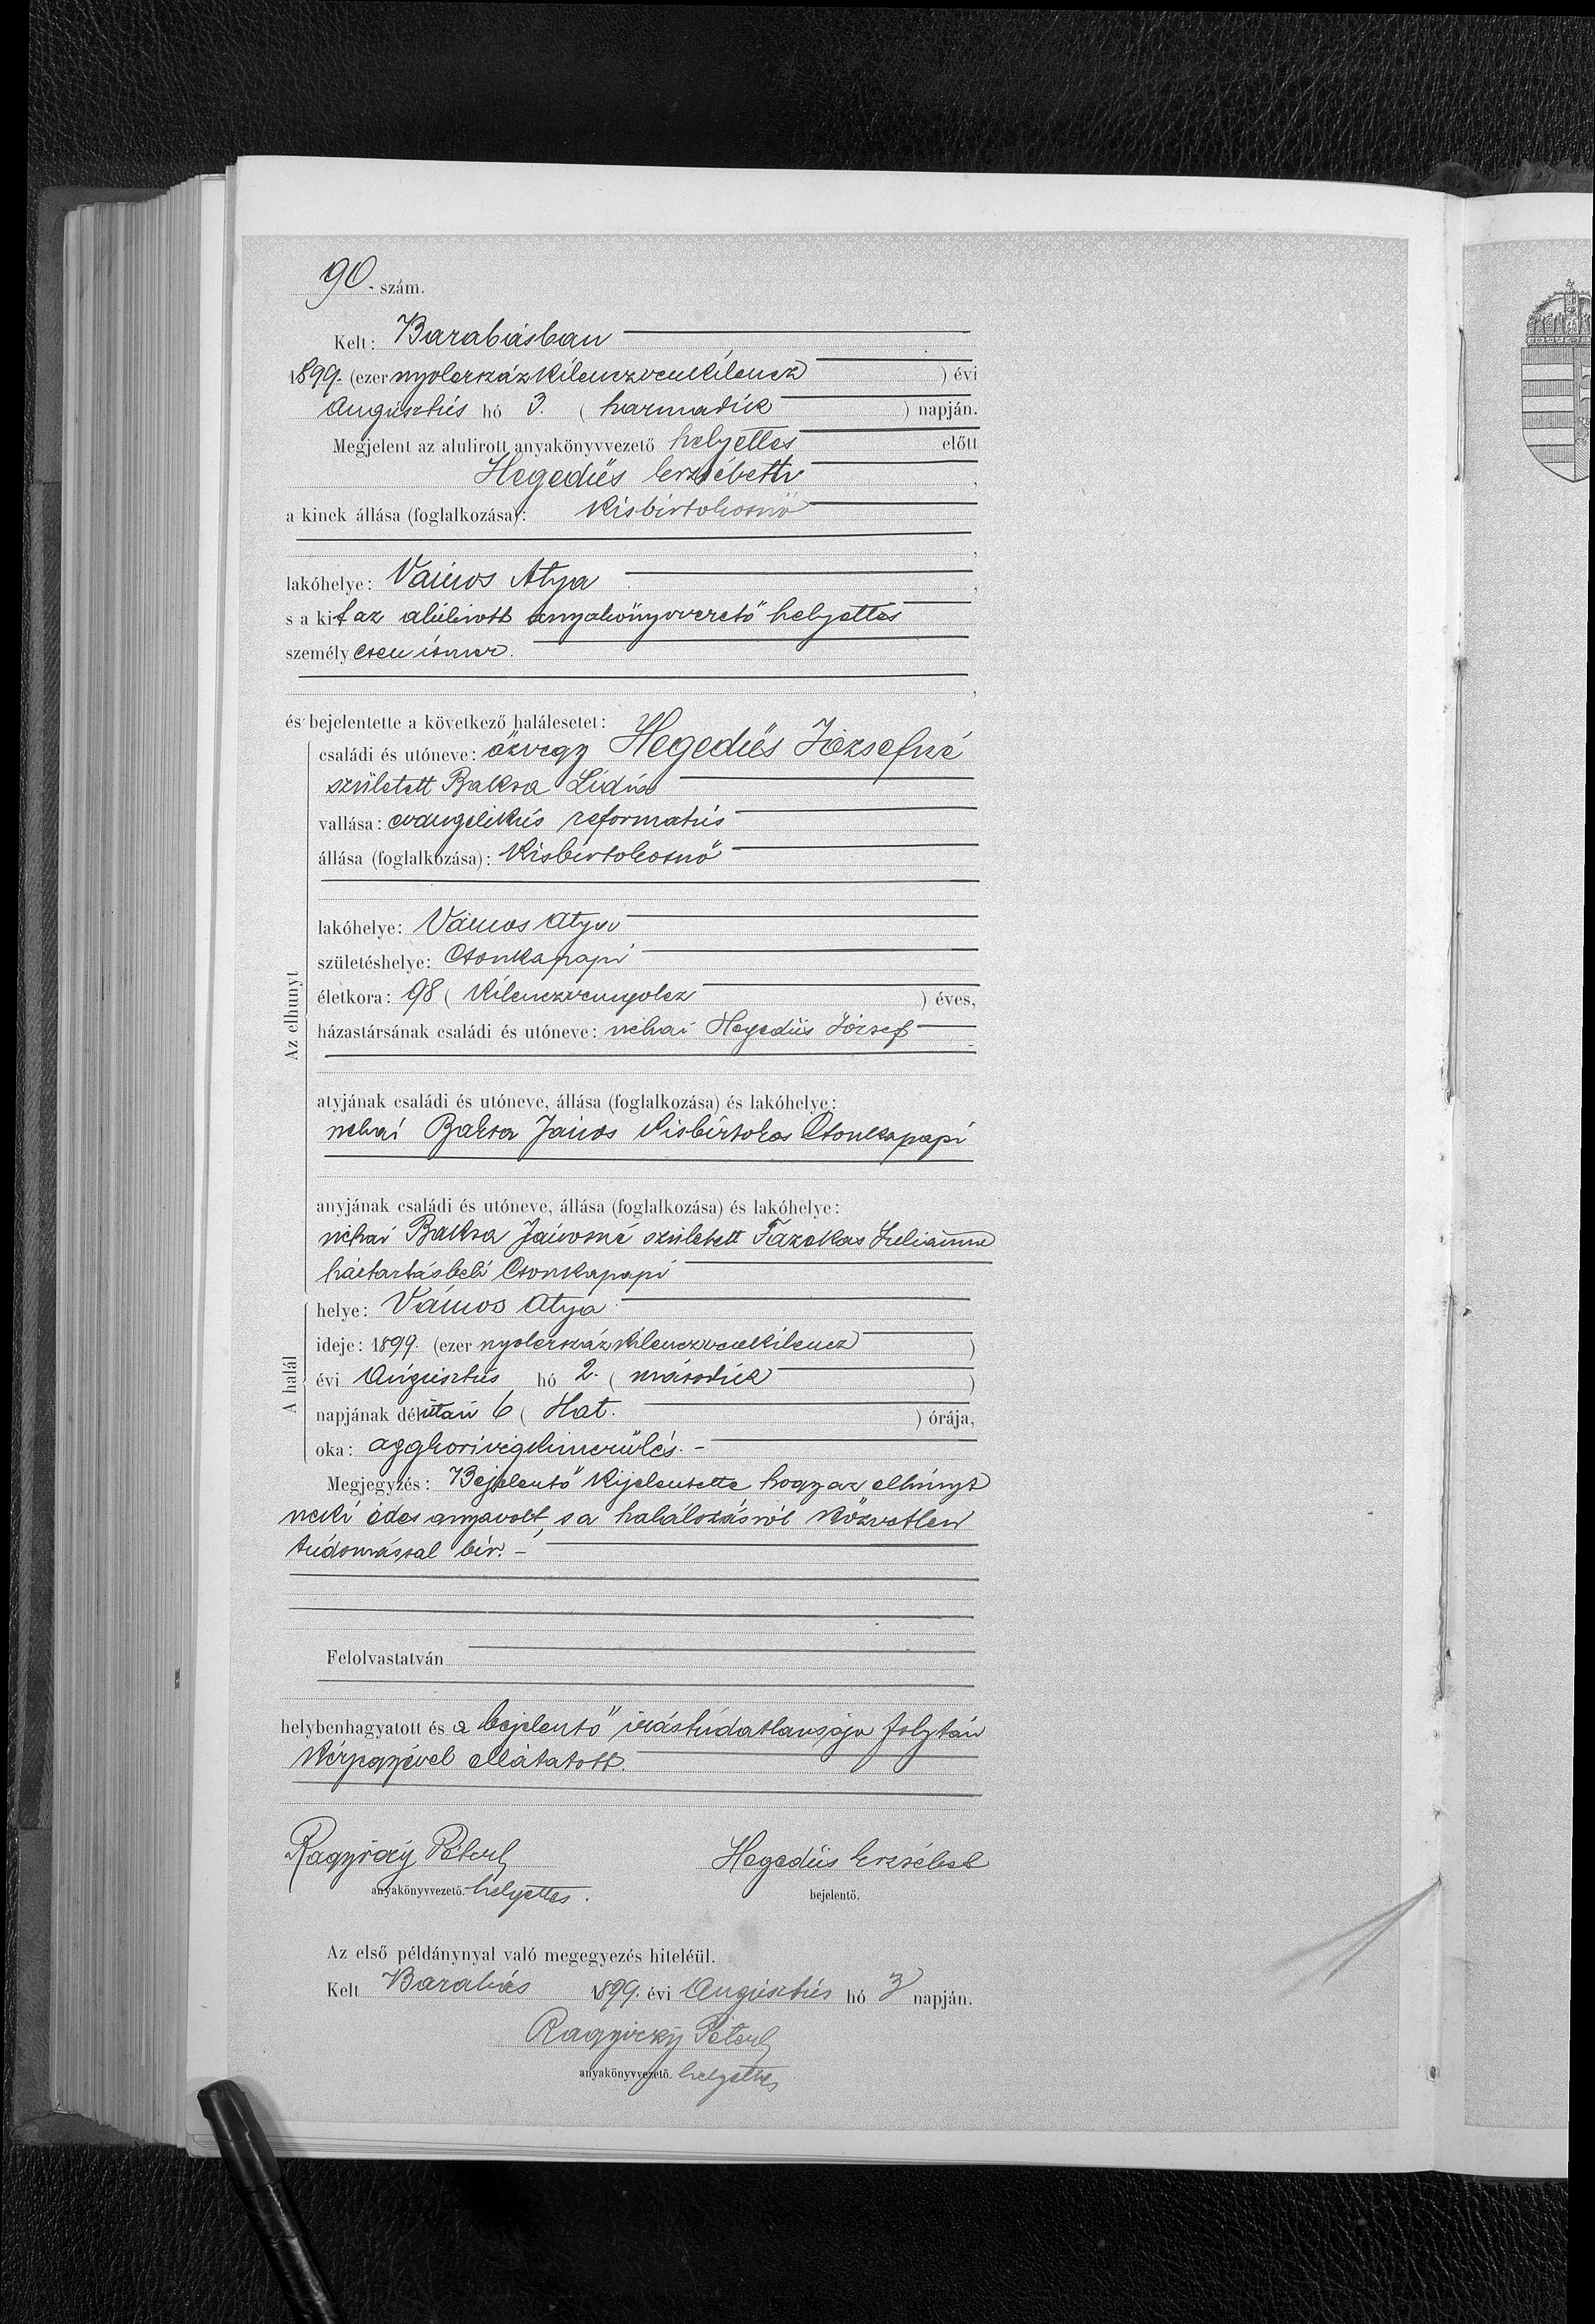 90. szám.
Kelt: Barabásban
1899. (ezer nyolczszázkilenczvenkilencz) évi
Augusztus hó 3. (harmadik) napján.
Megjelent az alulirott anyakönyvvezető helyettes előtt
Hegedüs Erzsébeth,
a kinek állása (foglalkozása): Kisbirtokosnő
,
lakóhelye: Vámos Atya,
s a kit az alulirott anyakönyvvezető helyettes
személyesen ismer.
,
és bejelentette a következő halálesetet:
Az elhunyt
családi és utóneve: özvegy Hegedüs Józsefné
született Baksa Lidia
vallása: evangelikus reformatus
állása (foglalkozása): Kisbirtokosnő
lakóhelye: Vámos Atya
születéshelye: Csonkapapi
életkora: 98 (Kilenczvennyolcz) éves,
házastársának családi és utóneve: néhai Hegedüs József
atyjának családi és utóneve, állása (foglalkozása) és lakóhelye:
néhai Baksa János kisbirtokos Csonkapapi
anyjának családi és utóneve, állása (foglalkozása) és lakóhelye:
néhai Baksa Jánosné született Fazekas Julianna
háztartásbeli Csonkapapi
A halál
helye: Vámos Atya
ideje: 1899. (ezer nyolczszázkilenczvenkilencz)
évi Augusztus hó 2. (második)
napjának délután 6 (Hat.) órája,
oka: aggkori végelmerülés.
Megjegyzés: Bejelentő kijelentette, hogy az elhunyt
neki édes anya volt, s a halálozásról közvetlen
tudomással bir.
Felolvastatván
helybenhagyatott és a bejelentő irástudatlansága folytán
kézjegyével ellátatott.
Péter
anyakönyvvezető. helyettes.
Hegedüs Erzsébet
bejelentő.
Az első példánynyal való megegyezés hiteléül.
Kelt Barabás 1899. évi Augusztus hó 3 napján.
Péter
anyakönyvvezető. helyettes